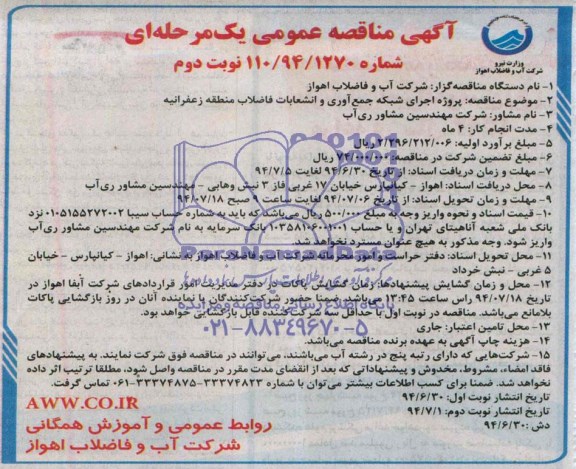 آگهی مناقصه عمومی یک‌مرحله‌ای
شماره ۱۱۰/۹۴/۱۲۷۰ نوبت دوم
وزارت نیرو
شرکت آب و فاضلاب اهواز
۱- نام دستگاه مناقصه‌گزار: شرکت آب و فاضلاب اهواز
۲- موضوع مناقصه: پروژه اجرای شبکه جمع‌آوری و انشعابات فاضلاب منطقه زعفرانیه
۳- نام مشاور: شرکت مهندسین مشاور ری‌آب
۴- مدت انجام کار: ۴ ماه
۵- مبلغ برآورد اولیه: ۲/۲۹۶/۲۱۲/۰۰۶ ریال
۶- مبلغ تضمین شرکت در مناقصه: ۷۴/۰۰۰/۰۰۰ ریال
۷- مهلت و زمان دریافت اسناد: از تاریخ ۹۴/۶/۳۰ لغایت ۹۴/۷/۵
۸- محل دریافت اسناد: اهواز - کیانپارس خیابان ۱۷ غربی فاز ۳ نبش وهابی - مهندسین مشاور ری‌آب
۹- مهلت و زمان تحویل اسناد: از تاریخ ۹۴/۰۷/۰۶ لغایت ساعت ۹ صبح ۹۴/۰۷/۱۸
۱۰- قیمت اسناد و نحوه واریز وجه به مبلغ ۵۰۰/۰۰۰ ریال می‌باشد که باید به شماره حساب سیبا ۰۱۰۵۱۵۵۲۷۲۰۰۲ نزد
بانک ملی شعبه آناهیتای تهران و یا حساب ۱۰۳۵۸۱۰۶۰۰۱۰۰۱ بانک سرمایه به نام شرکت مهندسین مشاور ری‌آب
واریز شود. وجه مذکور به هیچ عنوان مسترد نخواهد شد.
۱۱- محل تحویل اسناد: دفتر حراست و امور محرمانه شرکت آب و فاضلاب اهواز به نشانی: اهواز - کیانپارس - خیابان
۵ غربی - نبش خرداد
۱۲- محل و زمان گشایش پیشنهادها: زمان گشایش پاکات در دفتر معاملات امور قراردادهای شرکت آبفا اهواز در
تاریخ ۹۴/۰۷/۱۸ راس ساعت ۱۳:۴۵ می‌باشد. ضمنا حضور شرکت‌کنندگان یا نماینده آنان در روز بازگشایی پاکات
بلامانع می‌باشد. مناقصه در نوبت اول با حداقل سه شرکت‌کننده قابل بازگشایی خواهد بود.
۱۳- محل تامین اعتبار: جاری
۱۴- هزینه چاپ آگهی به عهده برنده مناقصه می‌باشد.
۱۵- شرکت‌هایی که دارای رتبه پنج در رشته آب می‌باشند، می‌توانند در مناقصه فوق شرکت نمایند. به پیشنهادهای
فاقد امضاء، مشروط، مخدوش و پیشنهاداتی که بعد از انقضای مدت مقرر در مناقصه واصل شود، مطلقا ترتیب اثر داده
نخواهد شد. ضمنا برای کسب اطلاعات بیشتر می‌توان با شماره ۳۳۳۷۴۸۲۳-۳۳۳۷۴۸۷۵-۰۶۱ تماس گرفت.
تاریخ انتشار نوبت اول: ۹۴/۶/۳۰
تاریخ انتشار نوبت دوم: ۹۴/۷/۱
دش: ۹۴/۶/۳۰
AWW.CO.IR
روابط عمومی و آموزش همگانی
شرکت آب و فاضلاب اهواز
پایگاه اطلاع رسانی مناقصه و مزایده
۰۲۱-۸۸۳۴۹۶۷۰-۵